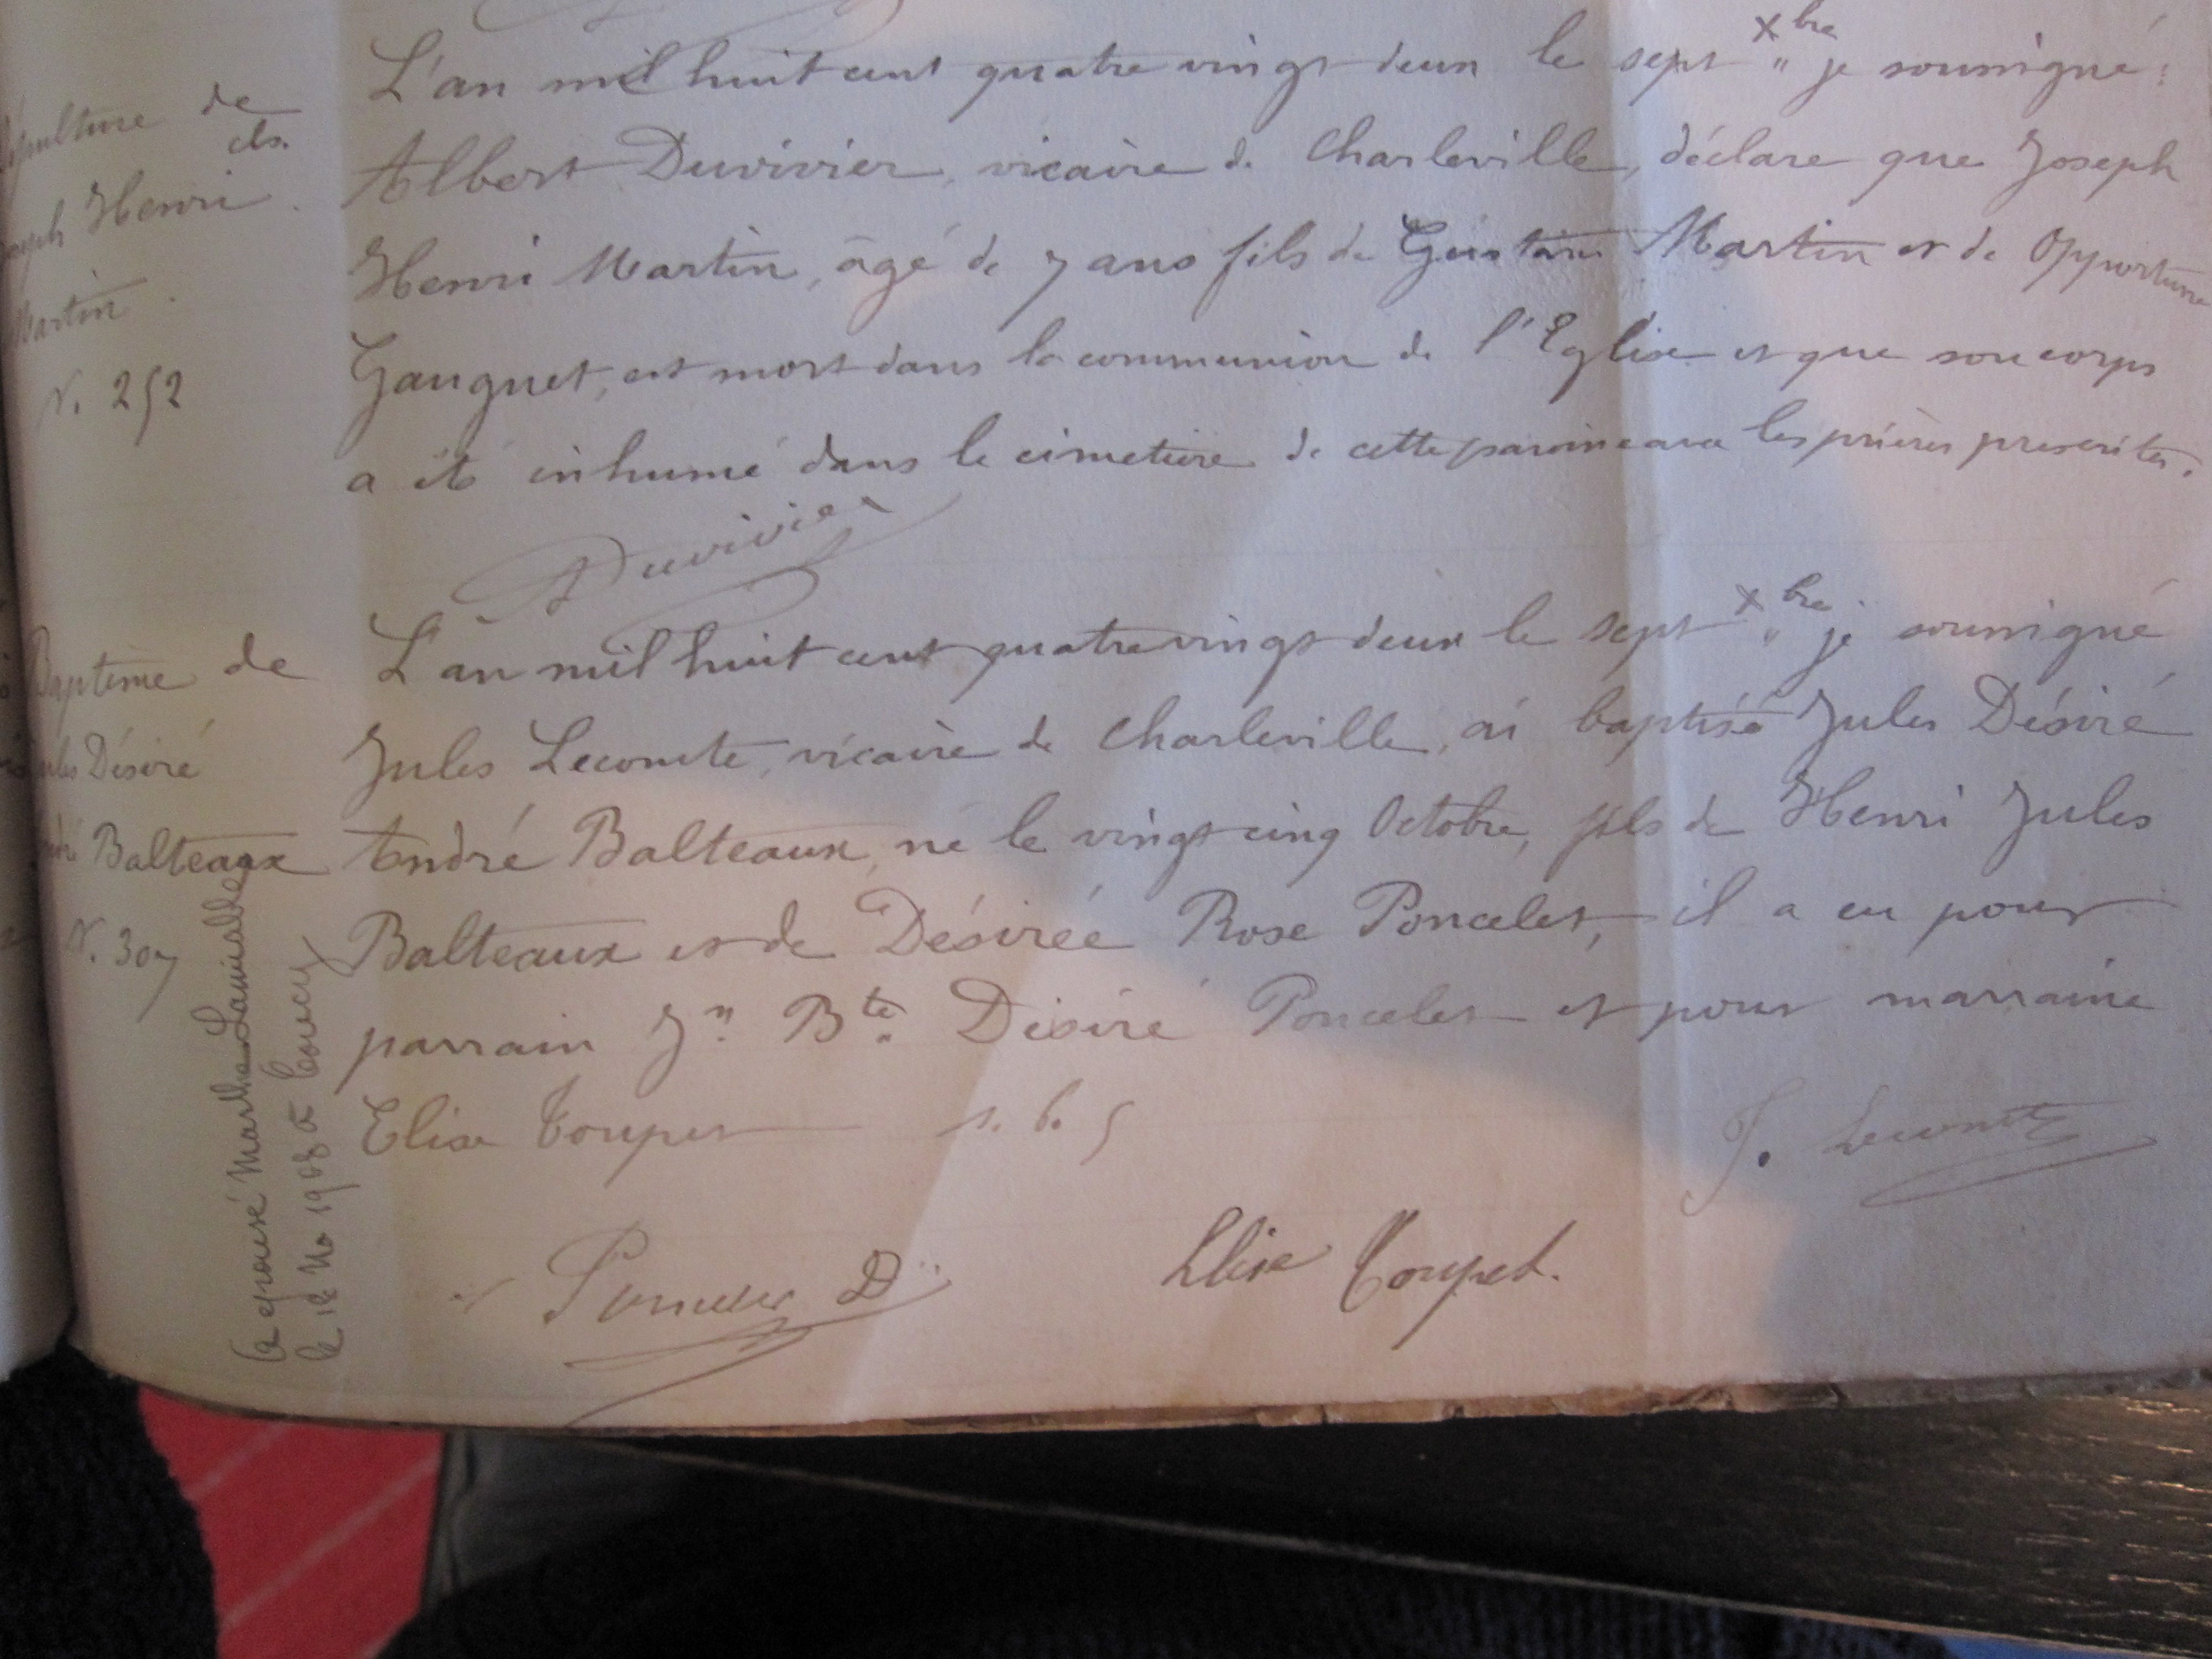 Sépulture de
cls.
Joseph Henri
Martin.
N. 252
L'an mil huit cent quatre vingt deux le sept Xbre je soussigné
Albert Duvivier, vicaire de Charleville, déclare que Joseph
Henri Martin, âgé de 7 ans fils de Gustave Martin et de Opportune
Gauguet, est mort dans la communion de l'Eglise et que son corps
a été inhumé dans le cimetière de cette paroisse avec les prières prescrites.
Duvivier
Baptême de
Jules Désiré
André Balteaux
N. 307
L'an mil huit cent quatre vingt deux le sept Xbre je soussigné
Jules Lecomte, vicaire de Charleville, ai baptisé Jules Désiré
André Balteaux, né le vingt cinq Octobre, fils de Henri Jules
Balteaux et de Désirée Rose Poncelet, il a eu pour
parrain Jn Bte Désiré Poncelet et pour marraine
Elise Toupet
J. Lecomte
Poncelet D
Elise Toupet.
a épousé Marthe
le 1908 à Coucy